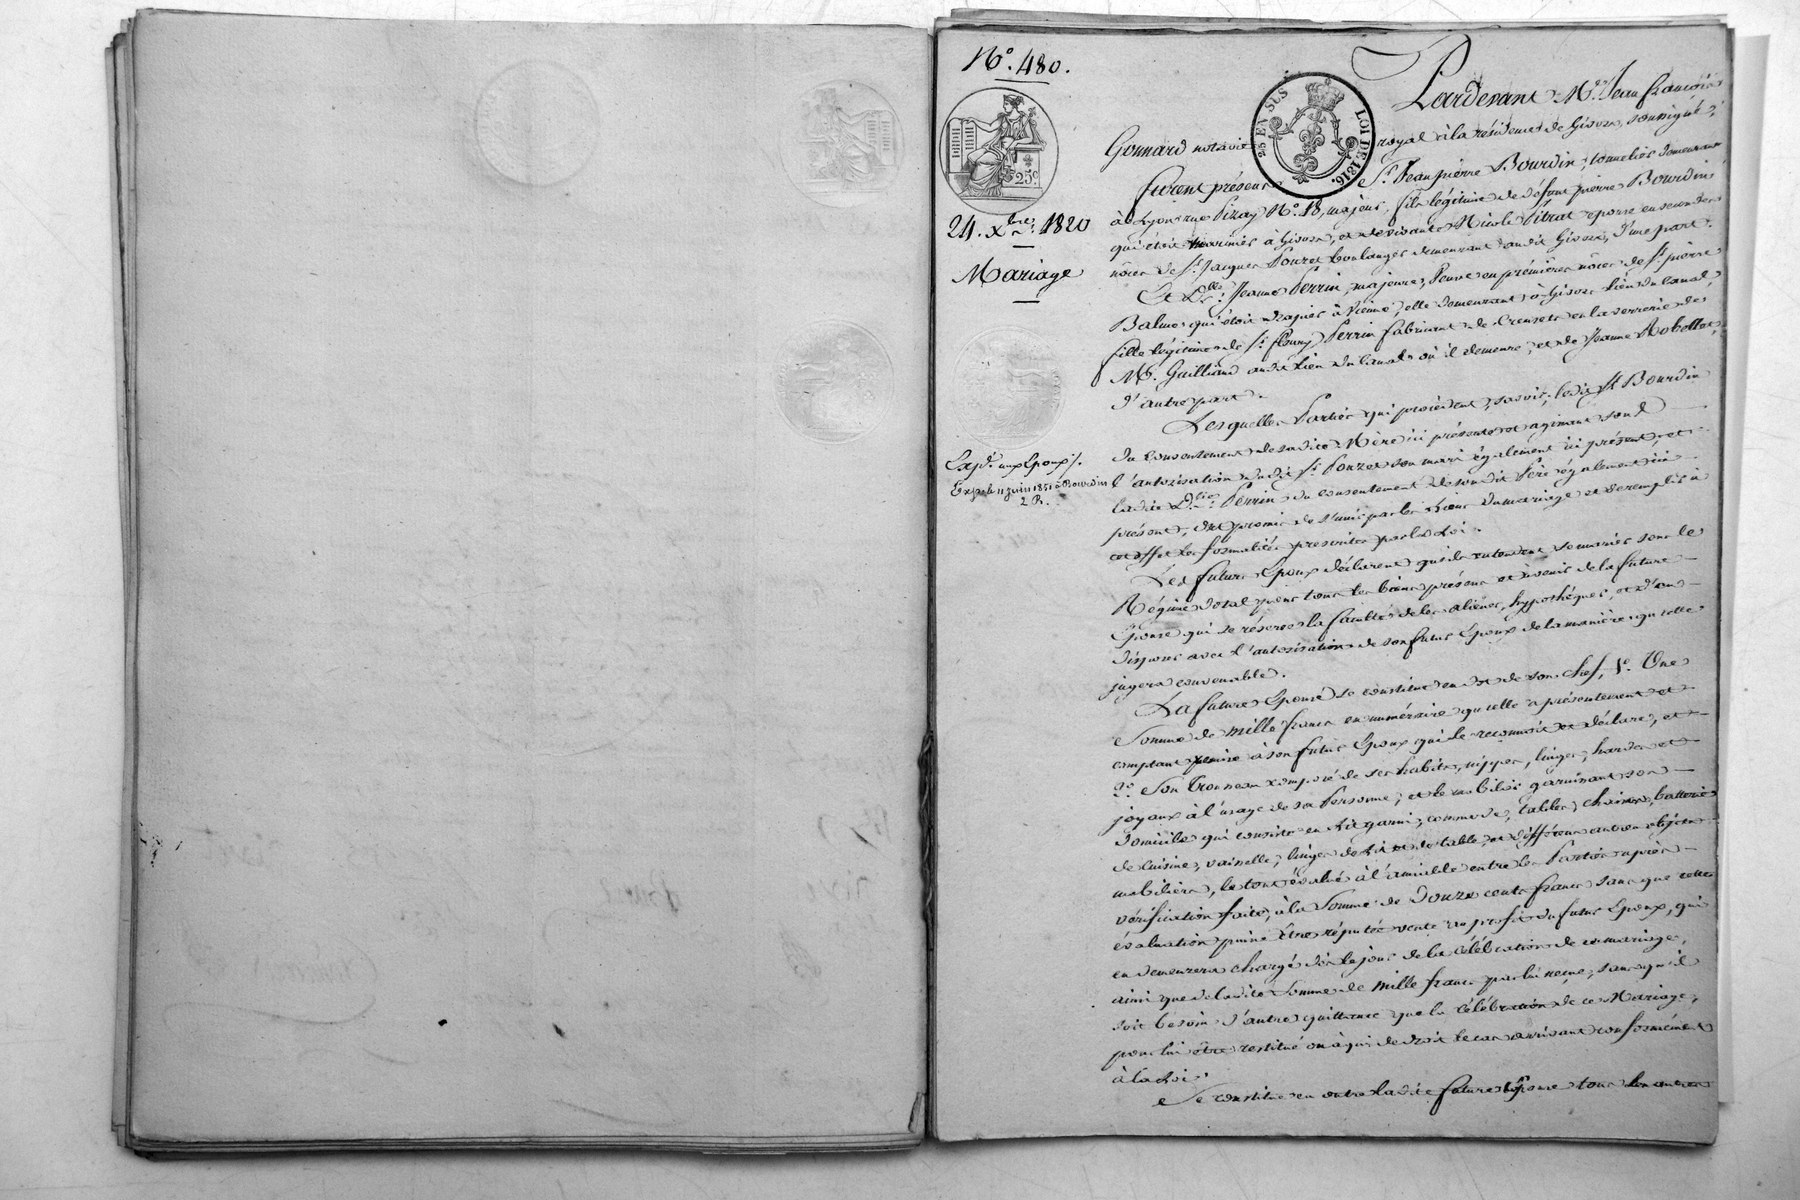 N.º 480.
25 EN SUS LOI DE 1816.
25 c.
24. xbre 1820
Mariage
Expd. aux Epoux /.
Exp. le 11 juin 1851 à Bourdin
2 R.
Pardevant M.e Jean francois
Gonnard notaire royal à la résidence de Givors, soussigné ;
furent présens Sr. Jean pierre Bourdin, tonnelier demeurant
à Lyon rue Pizay N.º 18, majeur, fils légitime de défunt pierre Bourdin
qui étoit marinier à Givors, et de vivante Nicole Pitrat reposée en secondes
nôces de Sr. Jacques Pouzet boulanger demeurant audit Givors, d'une part.
Et Dlle. Jeanne Perrin, majeure, Veuve en prémières nôces de Sr. pierre
Balme qui étoit à Vienne, elle demeurant à Givors lieu du canal,
fille légitime de Sr. fleury Perrin fabricant de Creusets en la verrerie de
Mr. Gailliard audit lieu du canal où il demeure, et de Jeanne Robellet,
d'autre part.
Lesquelles Parties qui procèdent, savoir, ledit Sr. Bourdin
du consentement de sadite Mère ici présente et agissant sous
l'autorisation dudit Sr. Pouzet son mari également ici présent, et
ladite Dlle. Perrin du consentement de son dit Père également ici
présent, ont promis de s'unir par les Liens du mariage et de remplir à
cet effet les formalités prescrites par la Loi.
Les futurs Epoux déclarent qu'ils entendent se marier sous le
Régime dotal pour tous les biens présens et à venir de la future
Epouse qui se réserve la faculté de les aliéner, hypothéquer, et d'en
disposer avec l'autorisation de son futur Epoux de la manière qu'elle
jugera convenable.
La future Epouse se constitue en dot de son chef, 1.º Une
Somme de mille francs en numéraire qu'elle a présentement et
comptant remise à son futur Epoux qui le reconnoit et déclare, et
2.º Son Trousseau composé de ses habits, nippes, linges, hardes et
joyaux à l'usage de sa Personne, et le mobilier garnissant son
domicile qui consiste en Lit garni, commode, tables, chaises, batterie
de cuisine, vaisselle, linges de Lit et de table, et différens autres objets
mobiliers, le tout évalué à l'amiable entre les Parties après
vérification faite, à la Somme de Douze cents francs sans que cette
évaluation puisse être réputée vente au profit du futur Epoux, qui
en demeurera chargé dès le jour de la célébration de ce mariage,
ainsi que de ladite Somme de mille francs par lui reçue, sans qu'il
soit besoin d'autre quittance que la célébration de ce Mariage,
pour lui être restitué ou à qui de droit le cas arrivant conformément
à la Loi.
Se constitue en outre ladite future Epouse tous les